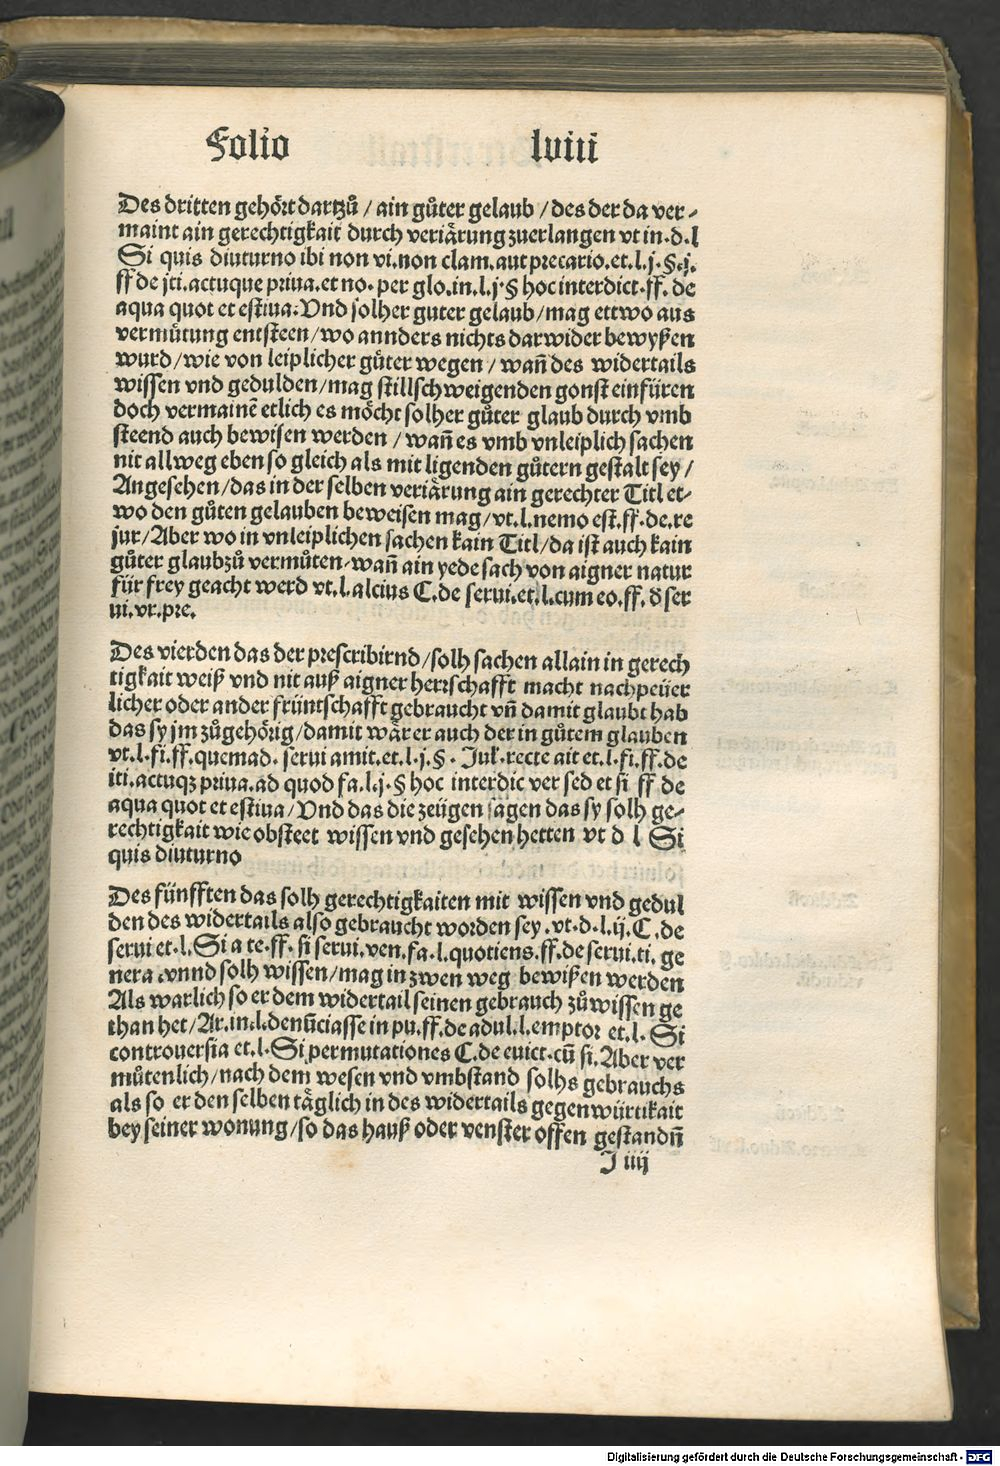 Folio lviii
Des dritten gehört dartzů / ain gůter gelaub / des der da ver-
maint ain gerechtigkait durch veriärung zuerlangen vt in.d.l
Si quis diuturno ibi non vi.non clam.aut precario.et.l.j.§.j.
ff de jti.actuque priua.et no. per glo.in.l.j.§ hoc interdict.ff. de
aqua quot et estiua. Vnd solher guter gelaub / mag ettwo aus
vermůtung entsteen / wo annders nichts darwider bewyßen
wurd / wie von leiplicher gůter wegen / wañ des widertails
wissen vnd gedulden / mag stillschweigenden gonst einfüren
doch vermainē etlich es möcht solher gůter glaub durch vmb
steend auch bewisen werden / wañ es vmb vnleiplich sachen
nit allweg eben so gleich als mit ligenden gůtern gestalt sey /
Angesehen / das in der selben veriärung ain gerechter Titl et-
wo den gůten gelauben beweisen mag / vt.l.nemo est.ff.de.re
jur / Aber wo in vnleiplichen sachen kain Titl / da ist auch kain
gůter glaub zů vermůten.wañ ain yede sach von aigner natur
für frey geacht werd vt.l.alcius C.de serui.et.l.cum eo.ff. d̄ ser
ui.vr.pre.
Des vierden das der prescribirnd / solh sachen allain in gerech
tigkait weiß vnd nit auß aigner herrschafft macht nachpeüer
licher oder ander früntschafft gebraucht vñ damit glaubt hab
das sy jm zůgehörig / damit wär er auch der in gůtem glauben
vt.l.fi.ff.quemad. serui amit.et.l.j.§. Jul.recte ait et.l.fi.ff.de
iti.actuqꝫ priua.ad quod fa.l.j.§ hoc interdic ver sed et si ff de
aqua quot et estiua / Vnd das die zeügen sagen das sy solh ge-
rechtigkait wie obsteet wissen vnd gesehen hetten vt d l Si
quis diuturno
Des fünfften das solh gerechtigkaiten mit wissen vnd gedul
den des widertails also gebraucht worden sey .vt.d.l.ij.C.de
serui et.l.Si a te.ff. si serui.ven.fa.l.quotiens.ff.de serui.ti. ge
nera .vnnd solh wissen / mag in zwen weg bewißen werden
Als warlich so er dem widertail seinen gebrauch zů wissen ge
than het / Ar.in.l.denūciasse in pu.ff.de adul.l.emptor et.l. Si
controuersia et.l.Si permutationes C.de euict.cū si.Aber ver
můtenlich / nach dem wesen vnd vmbstand solhs gebrauchs
als so er den selben täglich in des widertails gegenwürtikait
bey seiner wonung / so das hauß oder venster offen gestandñ
J iiij
Digitalisierung gefördert durch die Deutsche Forschungsgemeinschaft - DFG